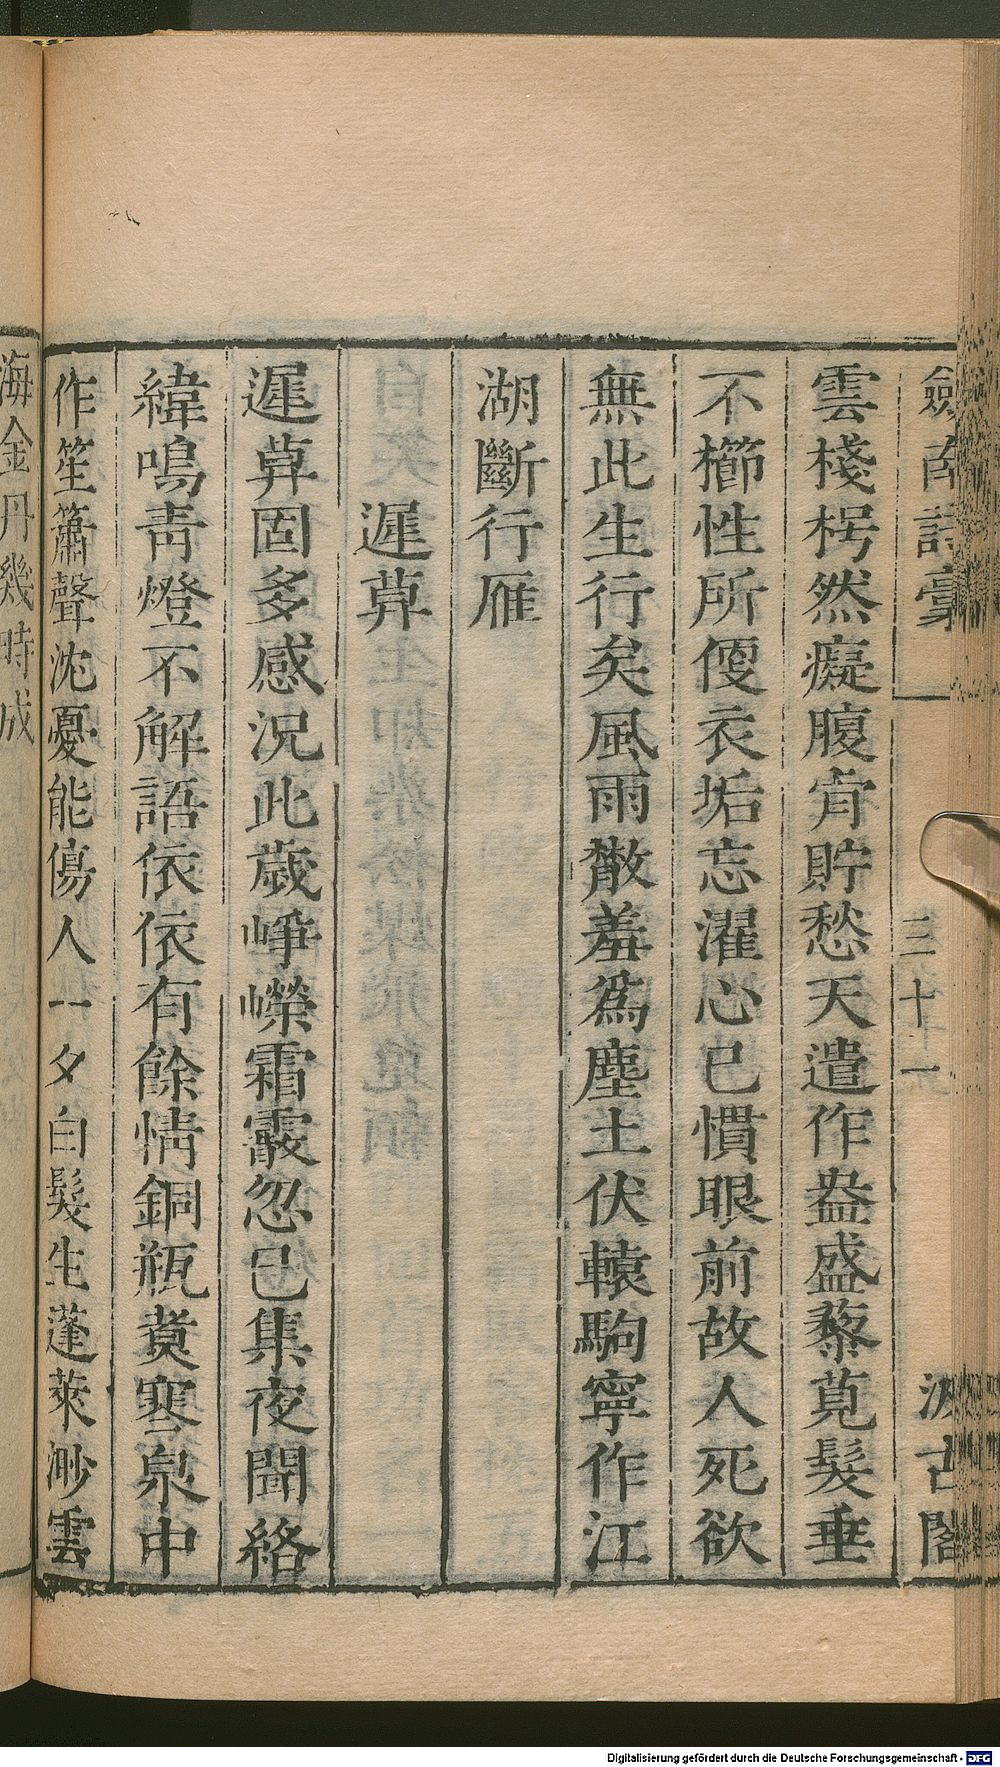 劔南詩稾 三十一 汲古閣
雲棧枵然癡腹肯貯愁天遣作盎盛藜莧髮垂
不櫛性所便衣垢忘濯心已慣眼前故人死欲
無此生行矣風雨散羞爲塵土伏轅駒寧作江
湖斷行雁
遲莫
遲莫固多感況此歲崢嶸霜霰忽已集夜聞絡
緯鳴靑燈不解語依依有餘情銅瓶煑寒泉中
作笙簫聲沈憂能傷人一夕白髮生蓬萊渺雲
海金丹幾時成
Digitalisierung gefördert durch die Deutsche Forschungsgemeinschaft - DFG